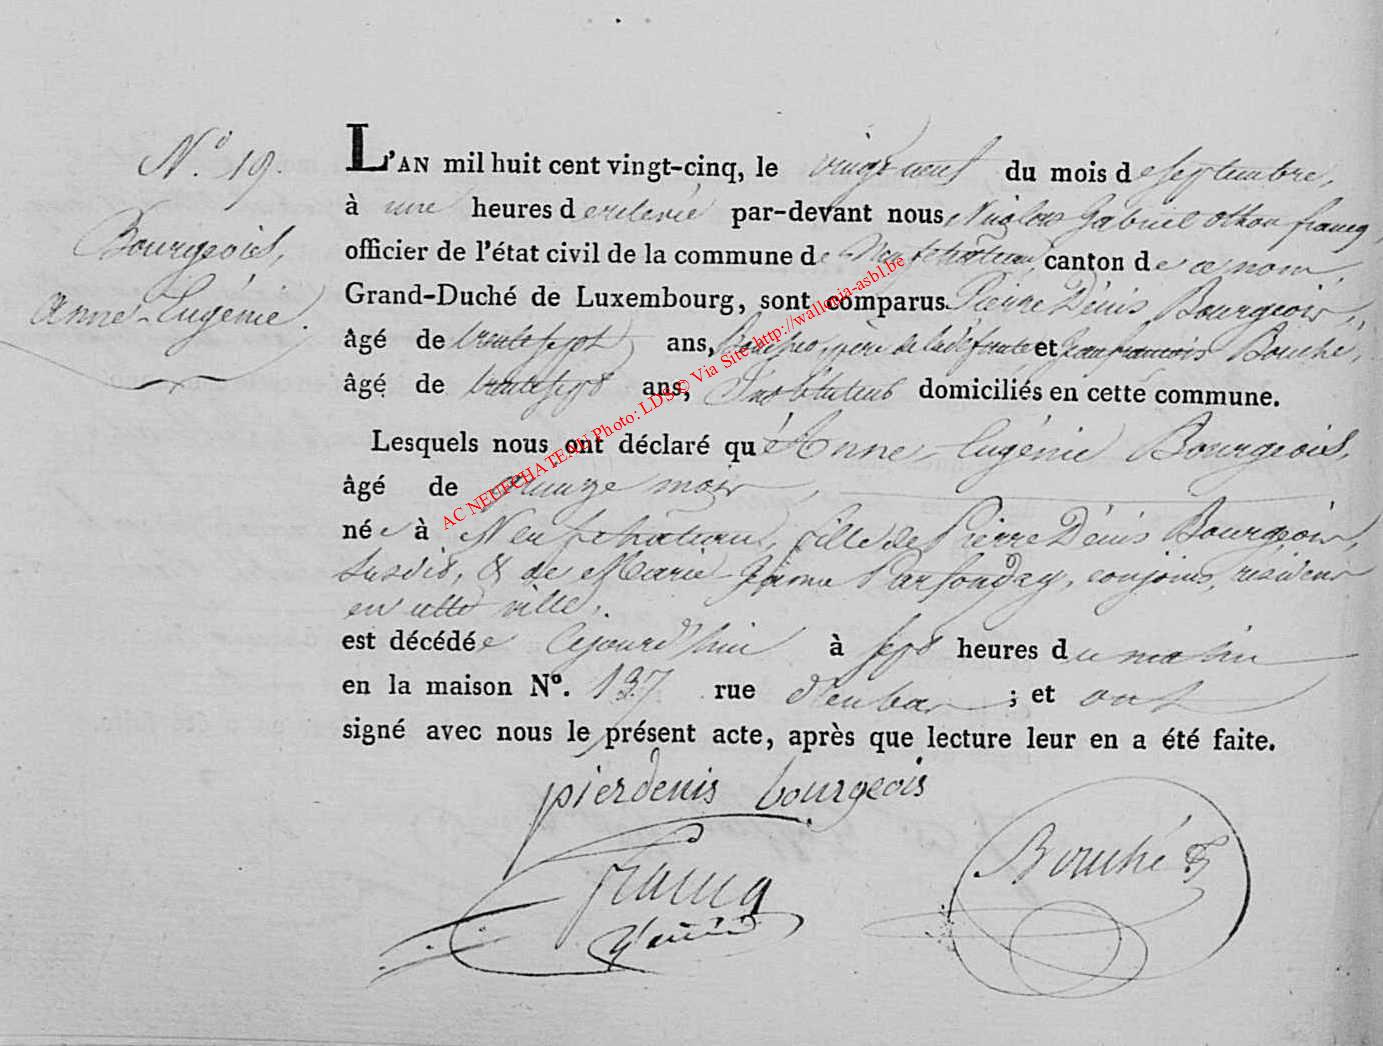 N.° 19.
Bourgeois,
Anne-Eugénie.
L'AN mil huit cent vingt-cinq, le vingt neuf du mois de septembre,
à une heures de relevée par-devant nous Nicolas Gabriel Othon francq,
officier de l'état civil de la commune de Neufchateau, canton de ce nom,
Grand-Duché de Luxembourg, sont comparus Pierre Dénis Bourgeois,
âgé de trente sept ans, père de la défunte et Jean francois Bouché,
âgé de trente sept ans, Instituteur domiciliés en cette commune.
Lesquels nous ont déclaré qu'Anne-Eugénie Bourgeois,
âgé de quinze mois,
née à Neufchateau, fille de Pierre Dénis Bourgeois,
susdit, & de Marie-Jeanne Parfondry, conjoins, residens
en cette ville,
est décédée cejourd'hui à sept heures du matin
en la maison N°. 137 rue d'enbas ; et ont
signé avec nous le présent acte, après que lecture leur en a été faite.
pierdenis bourgeois
francq
Bouché
AC NEUFCHATEAU Photo: LDS © Via Site http://wallonia-asbl.be